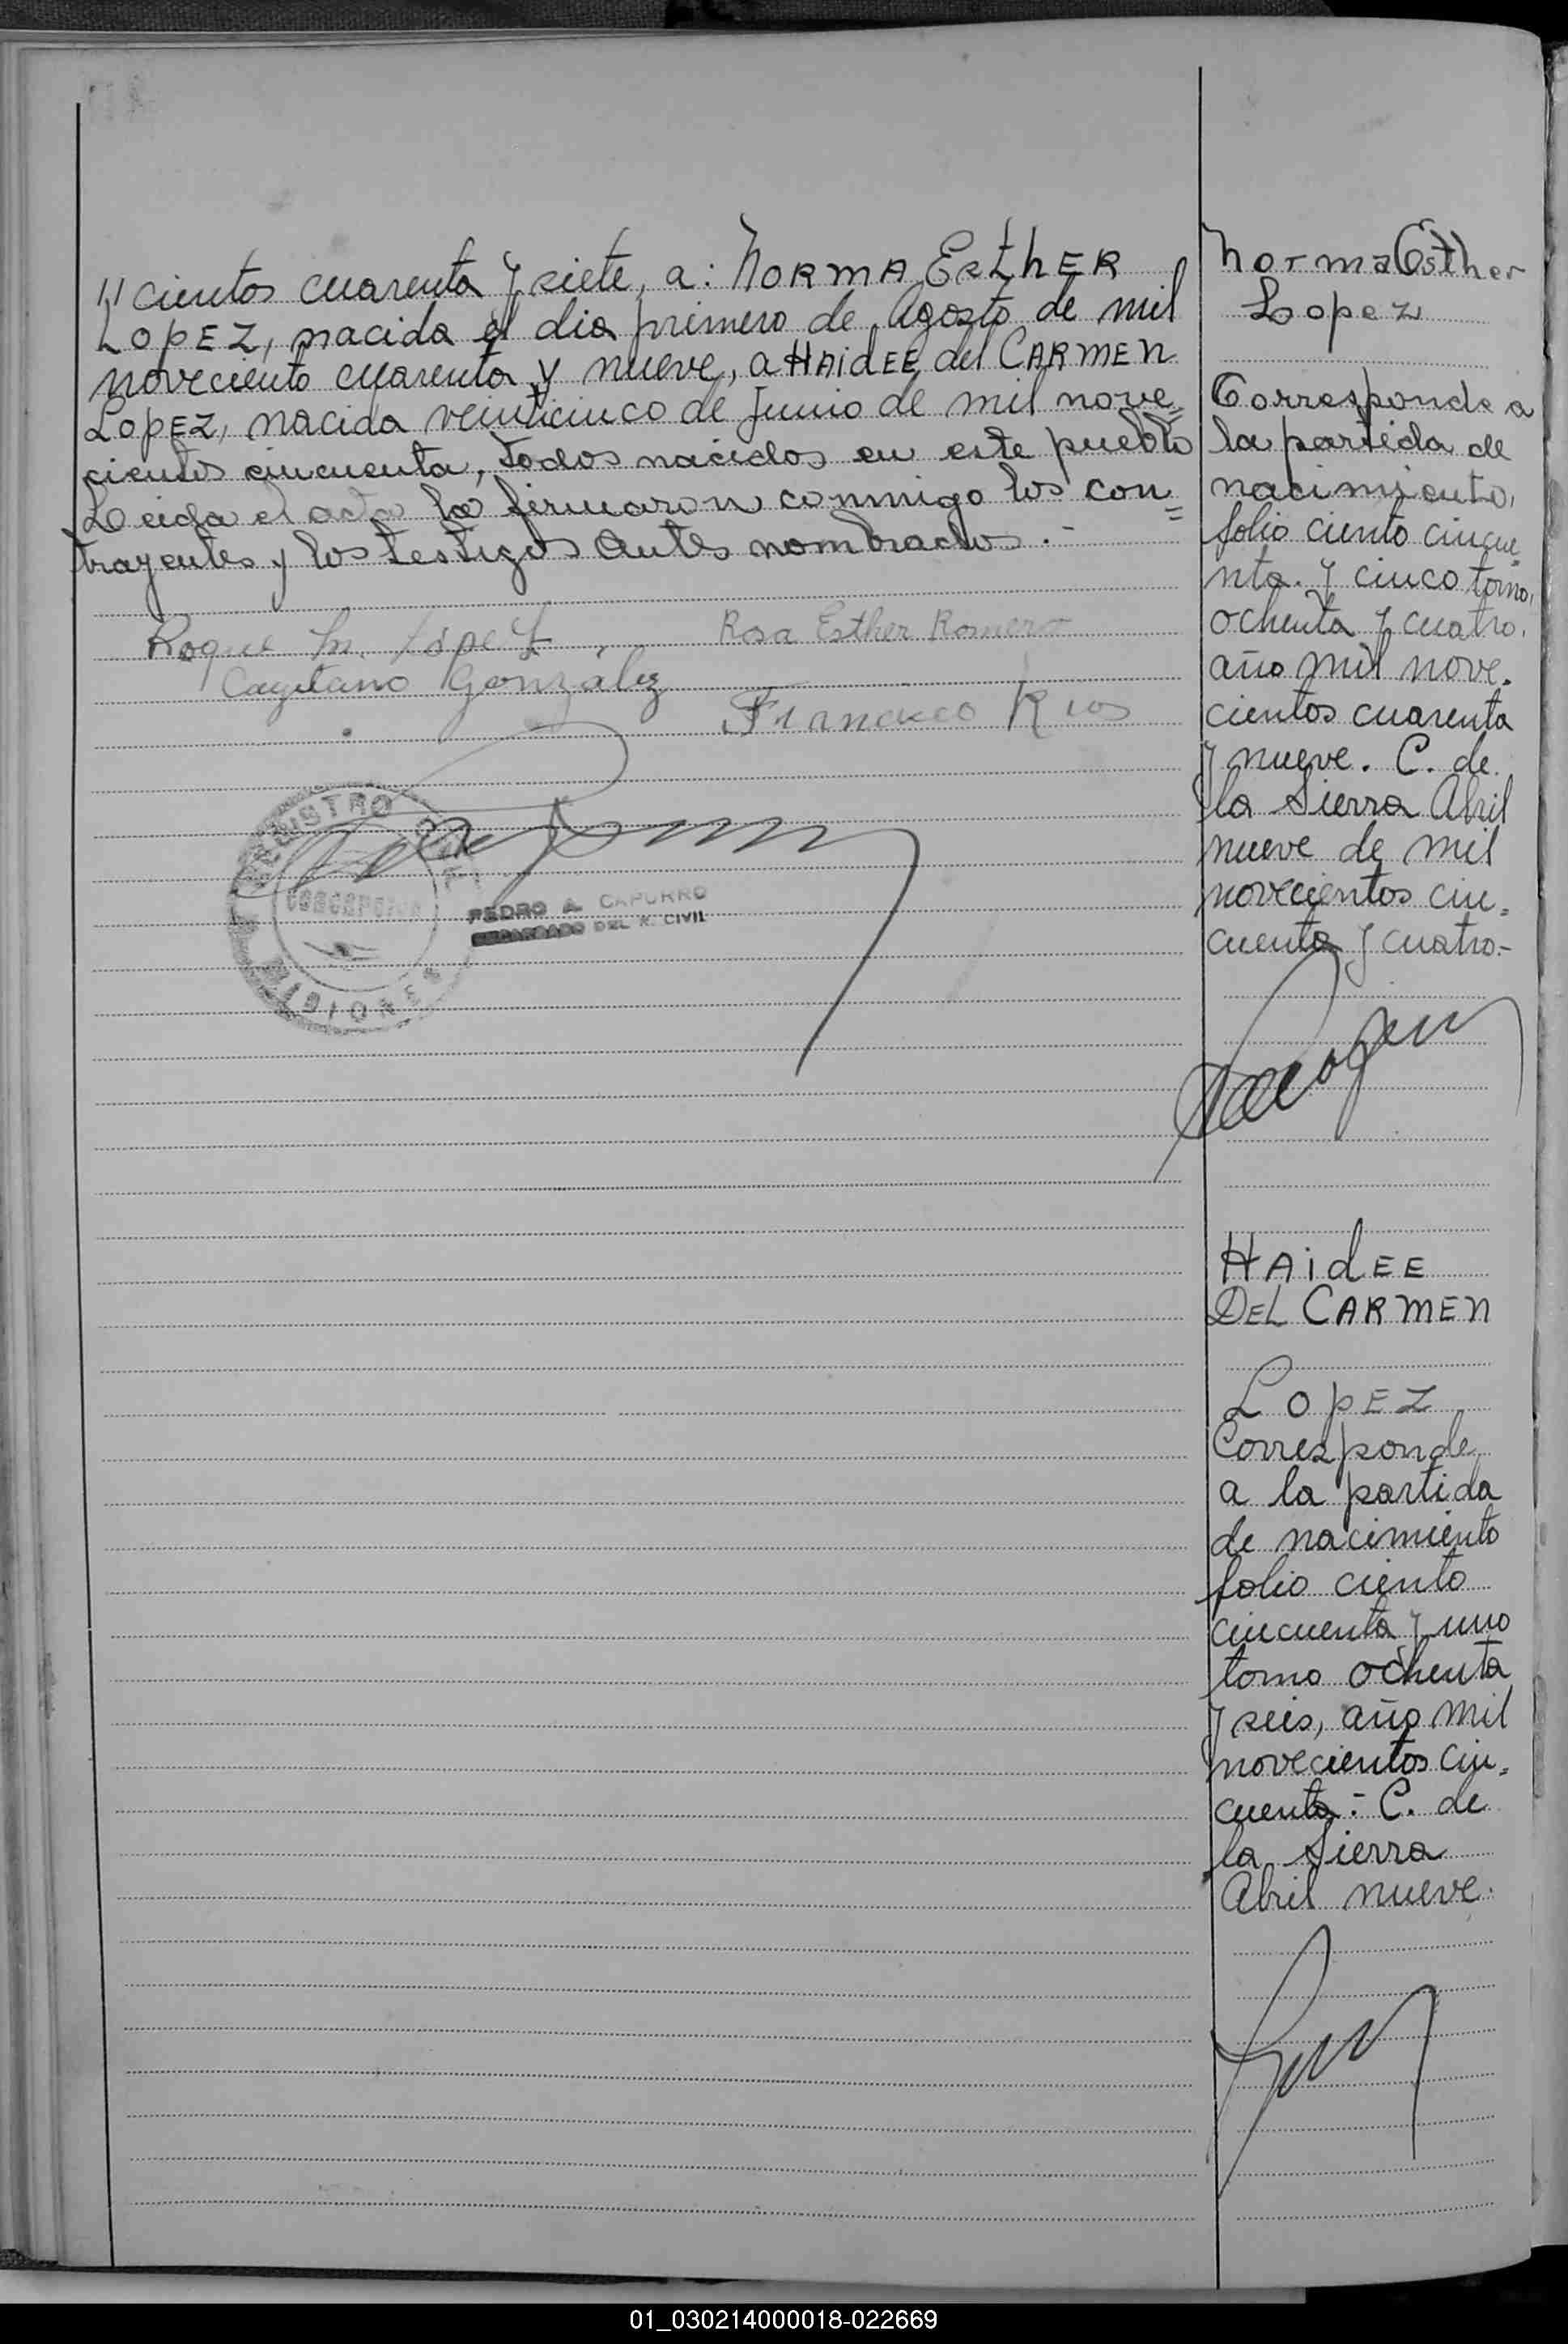 "cientos cuarenta y siete, a: NORMA EsthER
LOPEZ, nacida el dia primero de Agosto de mil
noveciento cuarenta y nueve, a HAidEE del CARMEN
LOPEZ, nacida veinticinco de Junio de mil nove=
cientos cincuenta, todos nacidos en este pueblo
Leida el acta la firmaron conmigo los con=
trayentes y los testigos antes nombrados.-
Roque M. López
Rosa Esther Romero
Cayetano González
Francisco Rios
REGISTRO
CONCEPCION
MISIONES
PEDRO A. CAPURRO
ENCARGADO DEL R. CIVIL
Norma Esther
Lopez
Corresponde a
la partida de
nacimiento,
folio ciento cincue=
nta. y cinco tomo,
ochenta y cuatro.
año mil nove.
cientos cuarenta
y nueve. C. de
la Sierra Abril
nueve de mil
novecientos cin=
cuenta y cuatro.-
HAidEE
DEL CARMEN
LOPEZ
Corresponde
a la partida
de nacimiento
folio ciento
cincuenta y uno
tomo ochenta
y seis, año mil
novecientos cin=
cuenta.- C. de
la Sierra
Abril nueve.
01_030214000018-022669